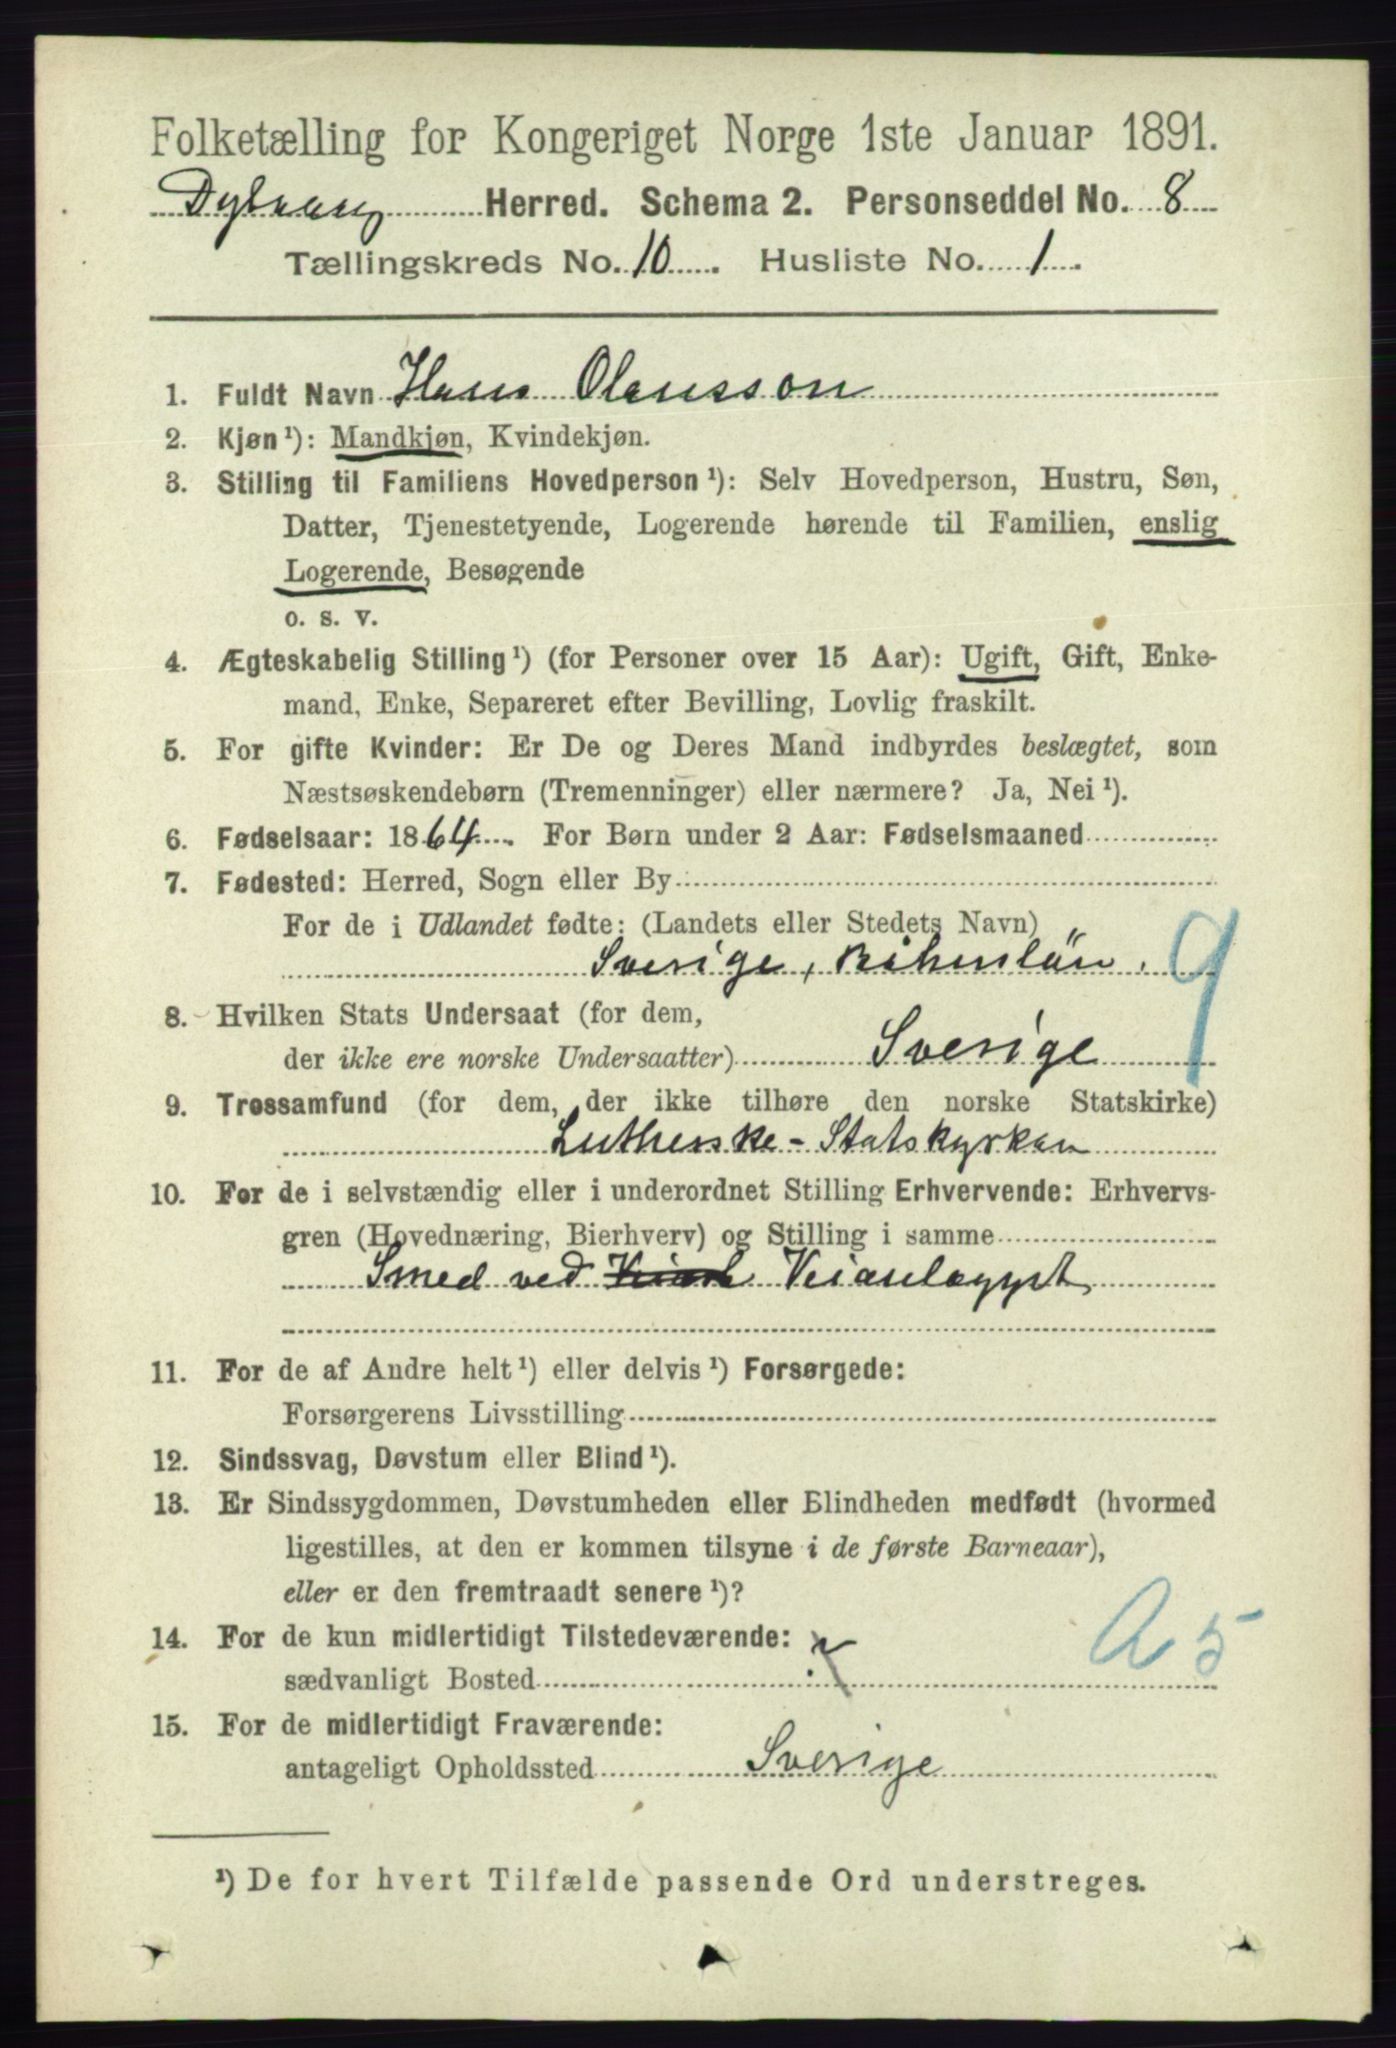 Folketælling for Kongeriget Norge 1ste Januar 1891.
Dybvaag Herred. Schema 2. Personseddel No. 8
Tællingskreds No. 10 . Husliste No. 1 .
1. Fuldt Navn Hans Olausson
2. Kjøn¹): Mandkjøn, Kvindekjøn.
3. Stilling til Familiens Hovedperson¹): Selv Hovedperson, Hustru, Søn,
Datter, Tjenestetyende, Logerende hørende til Familien, enslig
Logerende, Besøgende
o. s. v.
4. Ægteskabelig Stilling¹) (for Personer over 15 Aar): Ugift, Gift, Enke-
mand, Enke, Separeret efter Bevilling, Lovlig fraskilt.
5. For gifte Kvinder: Er De og Deres Mand indbyrdes beslægtet, som
Næstsøskendebørn (Tremenninger) eller nærmere? Ja, Nei¹).
6. Fødselsaar: 1864. For Børn under 2 Aar: Fødselsmaaned
7. Fødested: Herred, Sogn eller By
For de i Udlandet fødte: (Landets eller Stedets Navn)
Sverige, Bohuslän. 9
8. Hvilken Stats Undersaat (for dem,
der ikke ere norske Undersaatter) Sverige
9. Trossamfund (for dem, der ikke tilhøre den norske Statskirke)
Lutherske - Statskyrkan
10. For de i selvstændig eller i underordnet Stilling Erhvervende: Erhvervs-
gren (Hovednæring, Bierhverv) og Stilling i samme
Smed ved Veianlægget
11. For de af Andre helt¹) eller delvis¹) Forsørgede:
Forsørgerens Livsstilling
12. Sindssvag, Døvstum eller Blind¹).
13. Er Sindssygdommen, Døvstumheden eller Blindheden medfødt (hvormed
ligestilles, at den er kommen tilsyne i de første Barneaar),
eller er den fremtraadt senere¹)?
14. For de kun midlertidigt Tilstedeværende:
sædvanligt Bosted
a 5
15. For de midlertidigt Fraværende:
antageligt Opholdssted Sverige
¹) De for hvert Tilfælde passende Ord understreges.